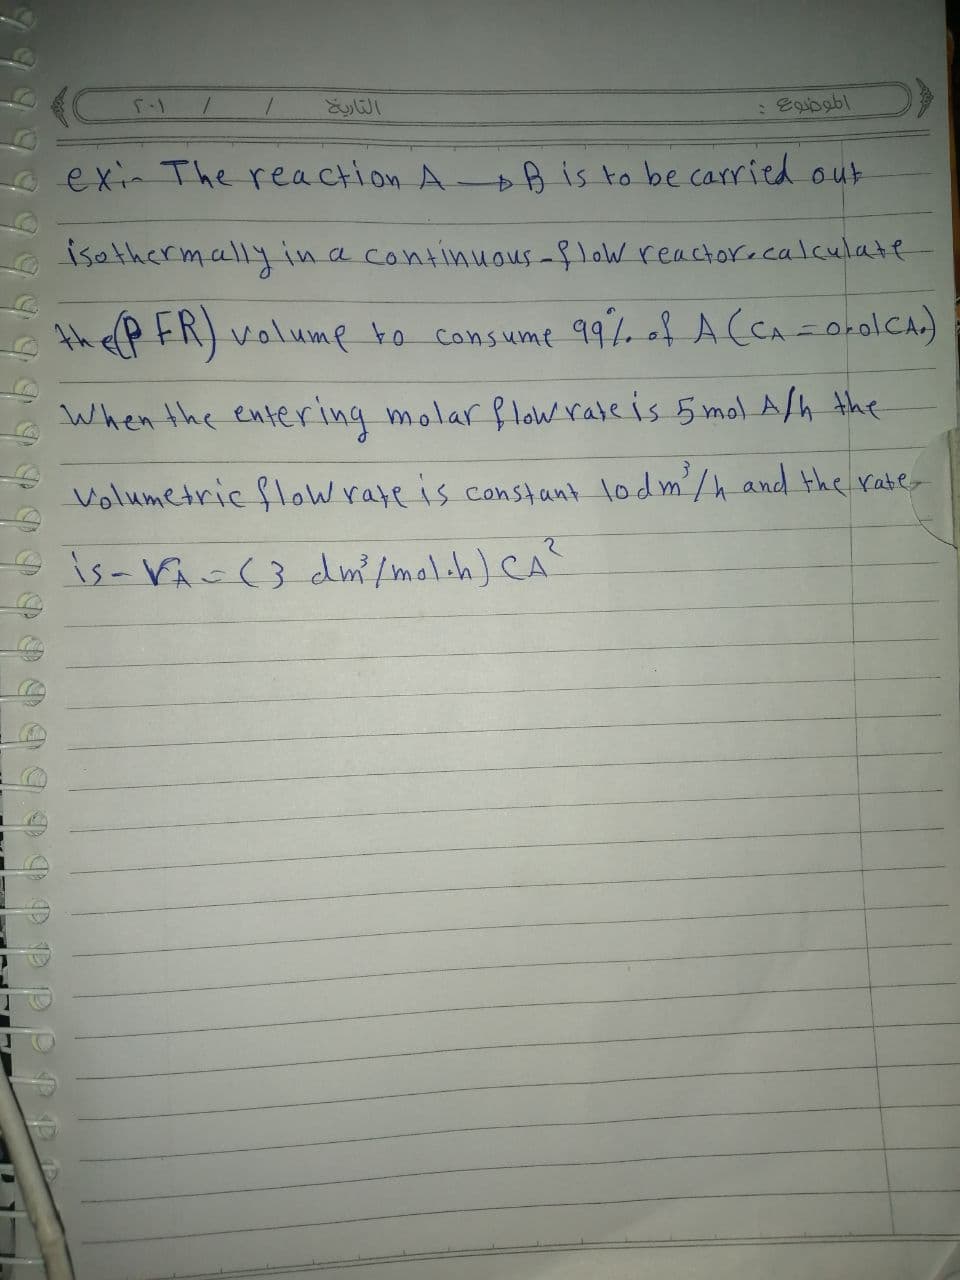 الموضوع : التاريخ / / ٢٠١
ex:- The reaction A → B is to be carried out
isothermally in a continuous-flow reactor. calculate
the (PFR) volume to consume 99% of A (CA = 0.01CA0)
When the entering molar flow rate is 5 mol A/h the
Volumetric flow rate is constant 10 dm³/h and the rate
is - rA = (3 dm³/mol.h) CA²